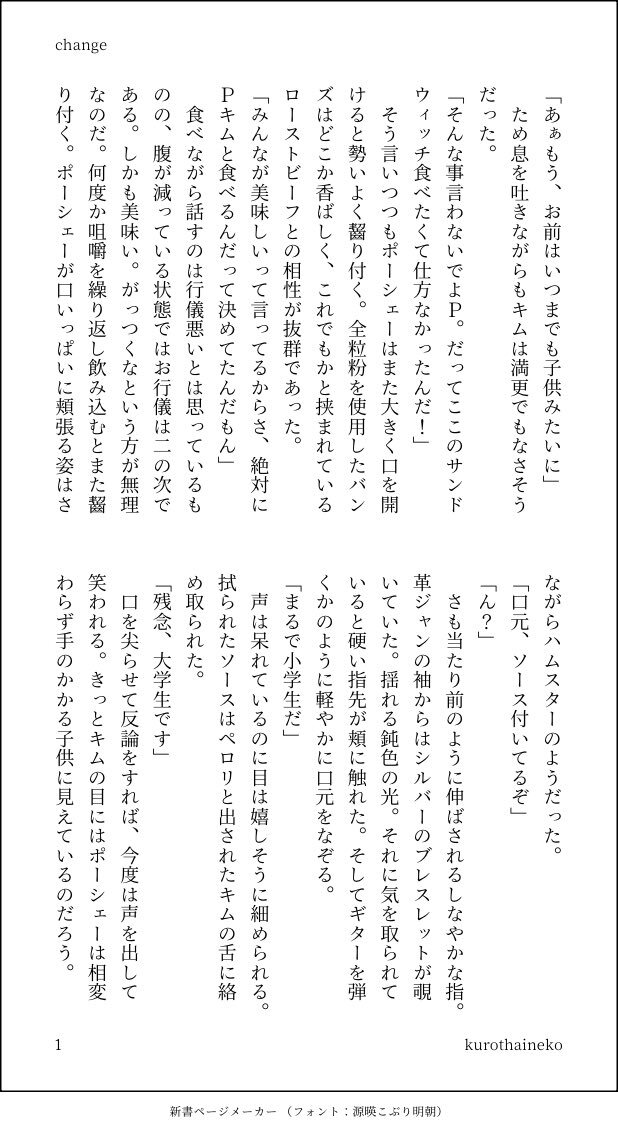 change
「あぁもう、お前はいつまでも子供みたいに」
　ため息を吐きながらもキムは満更でもなさそう
だった。
「そんな事言わないでよＰ。だってここのサンド
ウィッチ食べたくて仕方なかったんだ！」
　そう言いつつもポーシェーはまた大きく口を開
けると勢いよく齧り付く。全粒粉を使用したバン
ズはどこか香ばしく、これでもかと挟まれている
ローストビーフとの相性が抜群であった。
「みんなが美味しいって言ってるからさ、絶対に
Ｐキムと食べるんだって決めてたんだもん」
　食べながら話すのは行儀悪いとは思っているも
のの、腹が減っている状態ではお行儀は二の次で
ある。しかも美味い。がっつくなという方が無理
なのだ。何度か咀嚼を繰り返し飲み込むとまた齧
り付く。ポーシェーが口いっぱいに頬張る姿はさ
ながらハムスターのようだった。
「口元、ソース付いてるぞ」
「ん？」
　さも当たり前のように伸ばされるしなやかな指。
革ジャンの袖からはシルバーのブレスレットが覗
いていた。揺れる鈍色の光。それに気を取られて
いると硬い指先が頬に触れた。そしてギターを弾
くかのように軽やかに口元をなぞる。
「まるで小学生だ」
　声は呆れているのに目は嬉しそうに細められる。
拭られたソースはペロリと出されたキムの舌に絡
め取られた。
「残念、大学生です」
　口を尖らせて反論をすれば、今度は声を出して
笑われる。きっとキムの目にはポーシェーは相変
わらず手のかかる子供に見えているのだろう。
1
kurothaineko
新書ページメーカー（フォント：源暎こぶり明朝）